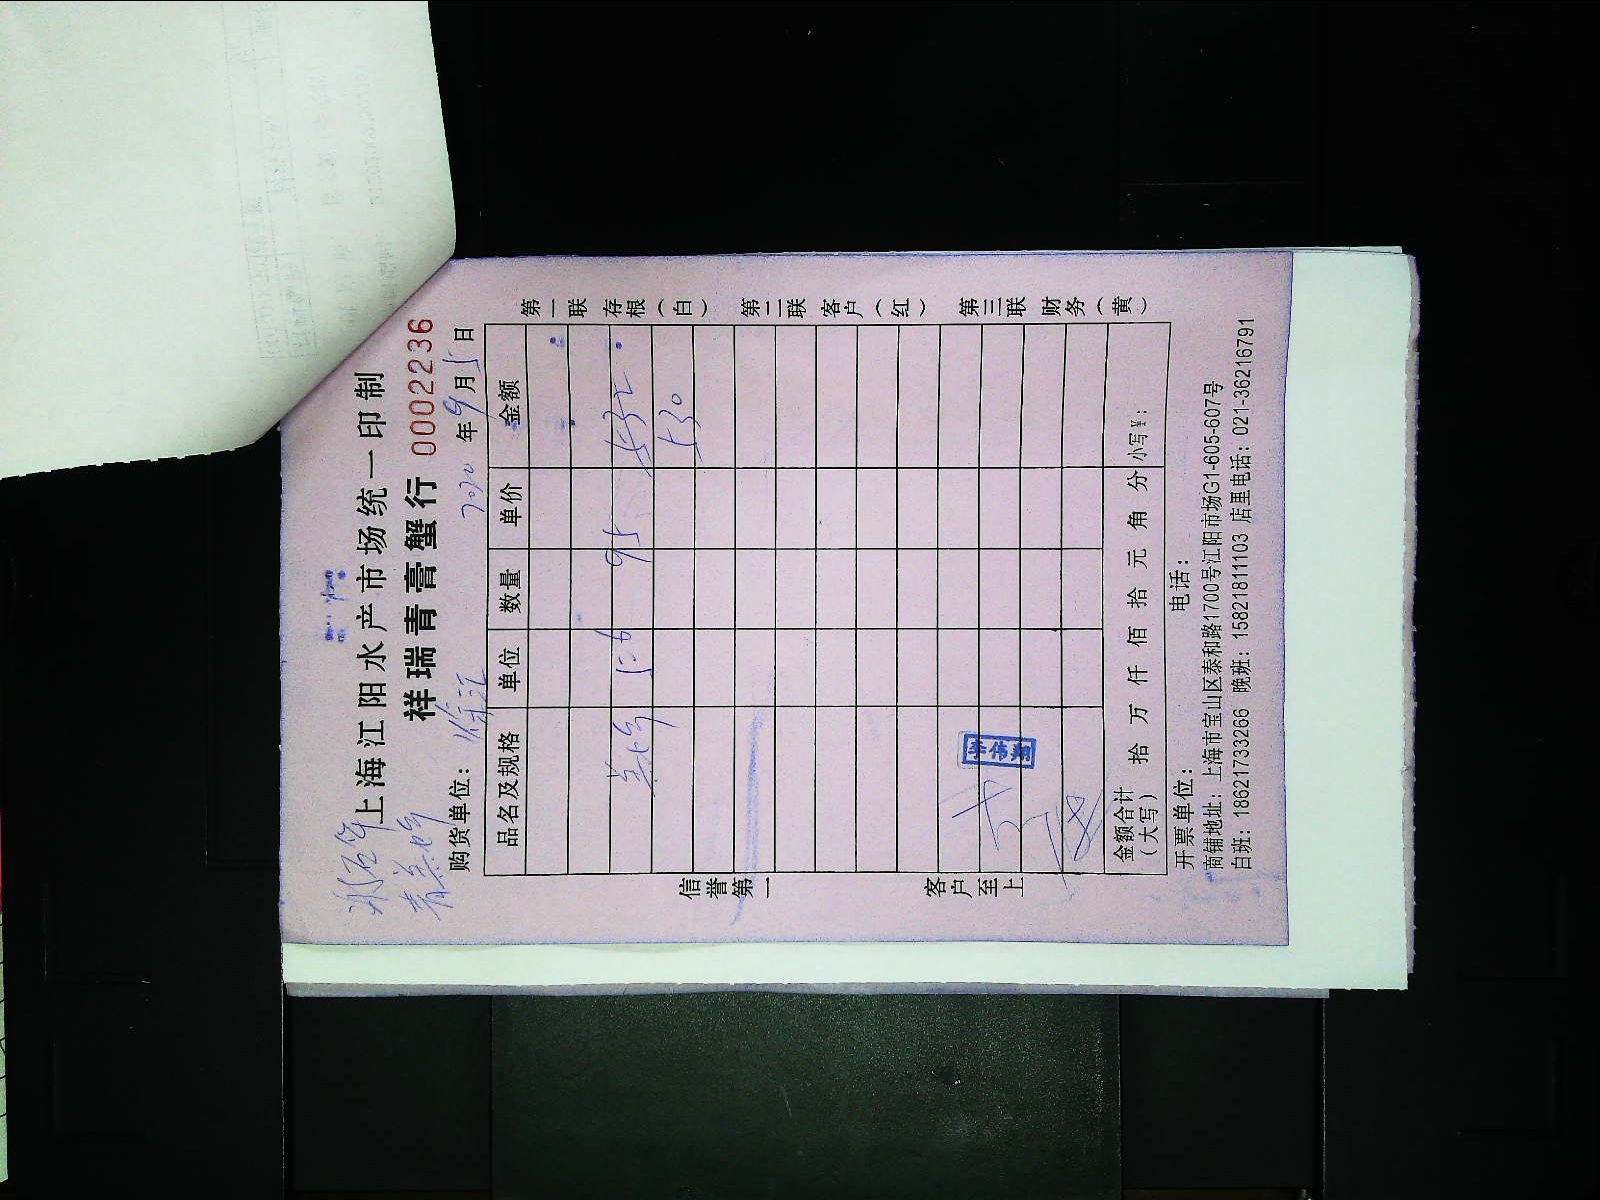 上海江阳水产市场统一印制
祥瑞青膏蟹行 0002236
购货单位： 徐汇 2020年9月5日
品名及规格 单位 数量 单价 金额
5.6 95 532
530
金额合计（大写） 拾 万 仟 佰 拾 元 角 分 小写¥：
开票单位： 电话：
商铺地址：上海市宝山区泰和路1700号江阳市场G1-605-607号
白班：18621733266 晚班：15821811103 店里电话：021-36216791
第一联 存根（白） 第二联 客户（红） 第三联 财务（黄）
信誉第一 客户至上